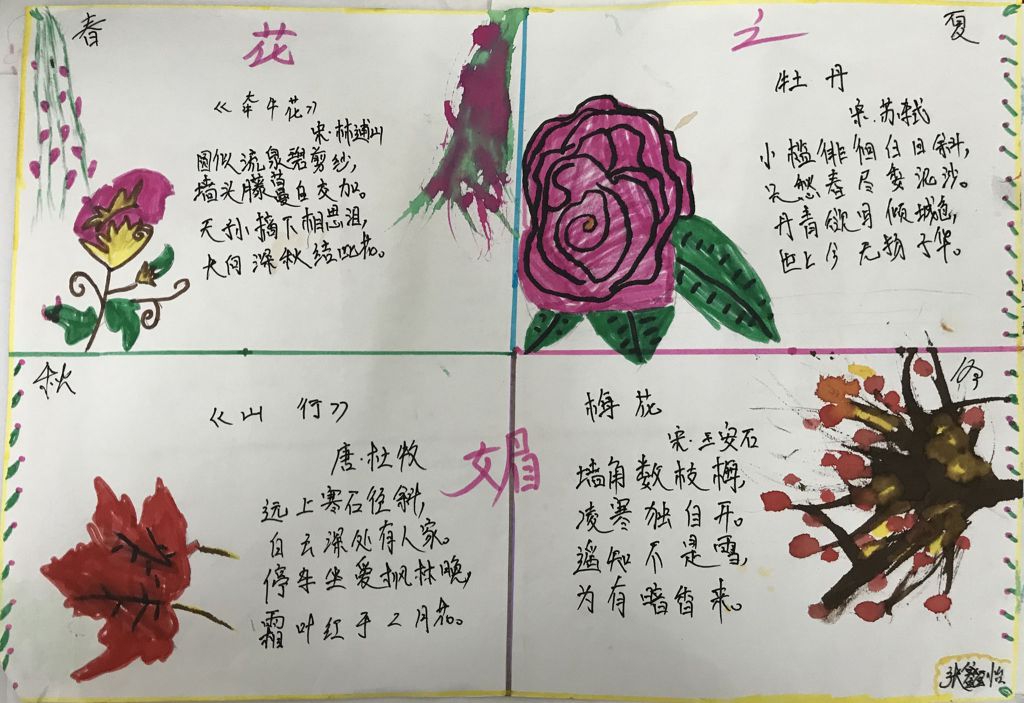 春
花
《牵牛花》
宋·林逋山
圆似流泉碧剪纱,
墙头藤蔓自交加。
天孙摘下相思泪,
向深秋结此花。
之
夏
牡丹
宋·苏轼
小槛徘徊日斜,
愁春尽委泥沙。
丹青欲写倾城色,
世上今无杨子华。
秋
《山行》
唐·杜牧
远上寒石径斜,
白云深处有人家。
停车坐爱枫林晚,
霜叶红于二月花。
媚
冬
梅花
宋·王安石
墙角数枝梅,
凌寒独自开。
遥知不是雪,
为有暗香来。
张鑫怡